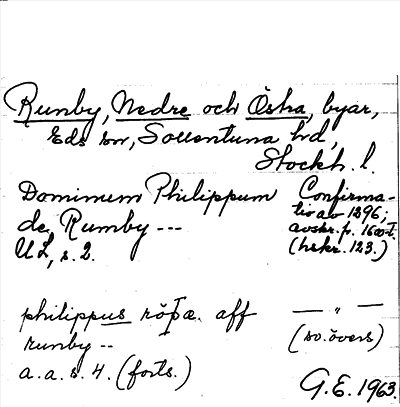 Runby, Nedre och Östra, byar,
Eds sn, Sollentuna hd,
Stockh. l.
Dominum Philippum
de Rumby ---
UL, s. 2.
Confirma-
tio av 1296;
avskr. fr. 1600-t.
(hskr. 123.)
philippus röþæ. aff
runby --
a. a. s. 4. (forts.)
— " —
(sv. övers)
G. E. 1963.